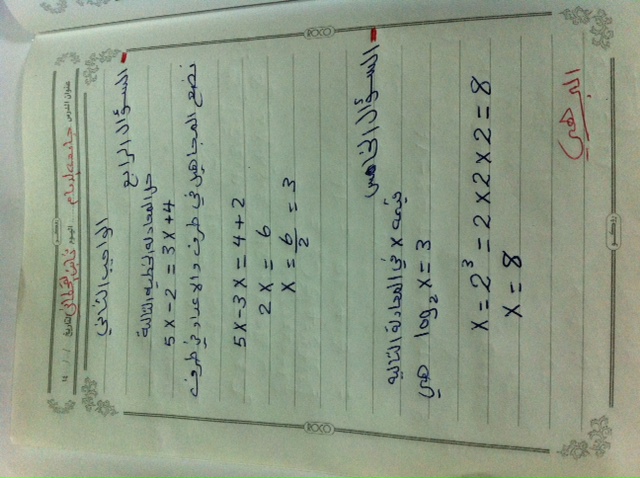 عنوان الدرس
التاريخ / / ١٤
الواجب الثاني
- السؤال الرابع
حل المعادلة الخطية التالية
5x - 2 = 3x + 4
نضع المجاهيل في طرف والاعداد في طرف
5x - 3x = 4 + 2
2x = 6
x = 6/2 = 3
- السؤال الخامس
قيمة x في المعادلة التالية
هي log₂ x = 3 هي
x = 2³ = 2 x 2 x 2 = 8
x = 8
ROCO
ROCO